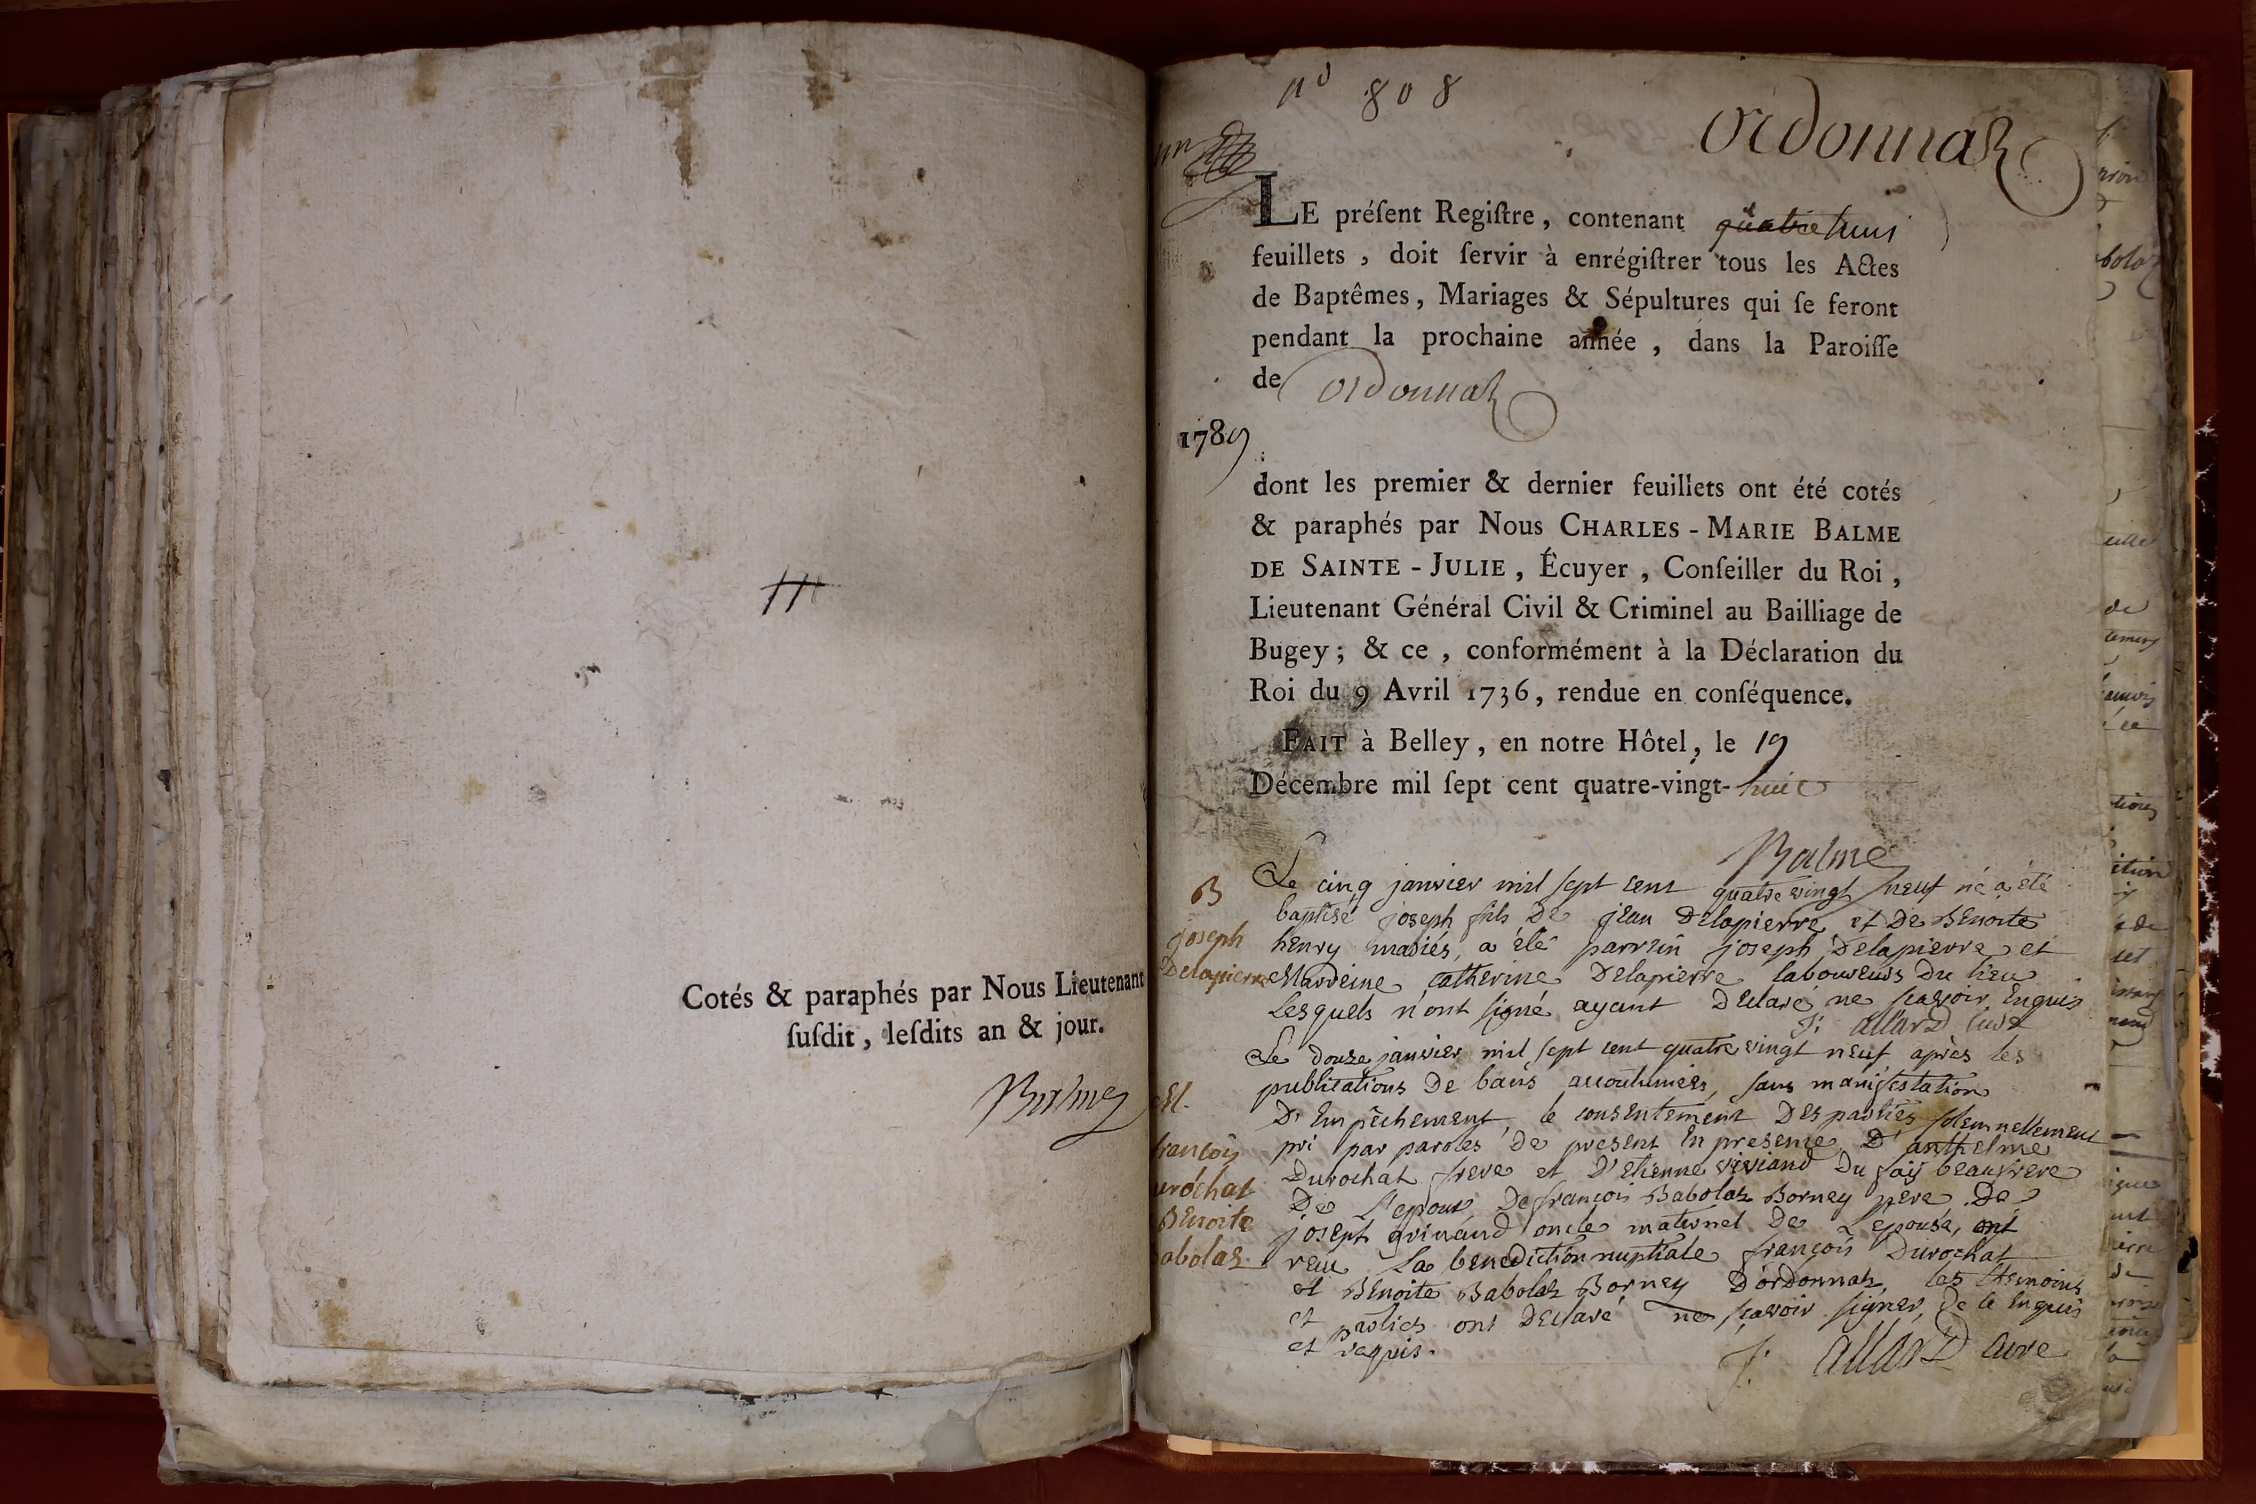 Cotés & paraphés par Nous Lieutenant
ſuſdit, leſdits an & jour.
Balme
nº 808
ordonnaz
LE préſent Regiſtre, contenant quatre huit
feuillets, doit ſervir à enrégiſtrer tous les Actes
de Baptêmes, Mariages & Sépultures qui ſe feront
pendant la prochaine année, dans la Paroiſſe
de ordonnaz
1789
dont les premier & dernier feuillets ont été cotés
& paraphés par Nous CHARLES-MARIE BALME
DE SAINTE-JULIE, Écuyer, Conſeiller du Roi,
Lieutenant Général Civil & Criminel au Bailliage de
Bugey; & ce, conformément à la Déclaration du
Roi du 9 Avril 1736, rendue en conſéquence.
FAIT à Belley, en notre Hôtel, le 19
Décembre mil ſept cent quatre-vingt-huit
Balme
B
joseph
Delapierre
Le cinq janvier mil sept cent quatre vingt neuf né a été
baptisé joseph fils De jean Delapierre et De Benoite
henry mariés, a été parrein joseph Delapierre et
Marreine catherine Delapierre laboureurs Du lieu
Lesquels n'ont signé ayant Declaré ne scavoir Enquis
F: allard curé
M.
françois
urochat
Benoite
abolaz
Le douze janvier mil sept cent quatre vingt neuf après les
publications De bans accoutumées, sans manifestation
D'Empêchement, le consentement Des parties solemnellement
pri par paroles De present En presence D'anthelme
Durochat frere et D'Etienne viviand Du fays beaufrere
De L'epoux De françois Babolaz Borney pere De
joseph grinand oncle maternel De L'épouse, ont
reçu La benediction nuptiale françois Durochat
et Benoite Babolaz Borney D'ordonnaz, les temoins
et parties ont Declaré ne scavoir signer, De ce Enquis
et requis.
F: allard curé